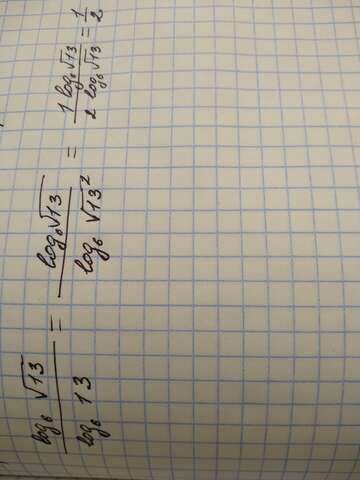 log₆ √13 / log₆ 13 = log₆ √13 / log₆ √13² = 1 log₆ √13 / 2 log₆ √13 = 1/2